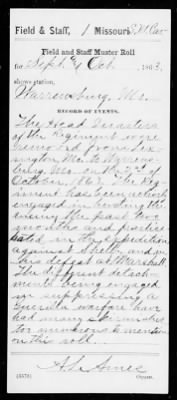 Field & Staff, 1 Missouri S.M. Cav
Field and Staff Muster Roll
for Sept & Oct, 1863.
shows station,
Warrensburg, Mo.
RECORD OF EVENTS.
The Head Quarters
of the Regiment were
removed from Lex-
ington, Mo. to Warrens-
burg, Mo. on the
October, 1863. The Reg-
iment has been actively
engaged in hunting the
enemy the past two
months and
in the expedition
against Shelby and
his defeat at Marshall.
The different detach-
ments being engaged
in suppressing a
Guerilla warfare have
had many skirmishes
too numerous to mention
on this roll.
(557d)